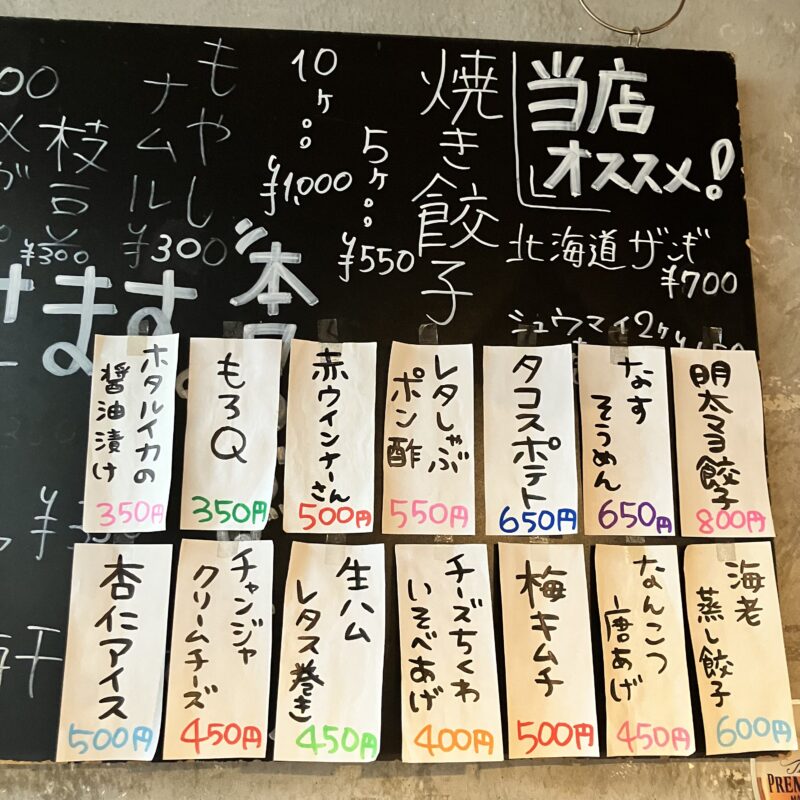 当店
オススメ!
北海道ザンギ
¥700
シュウマイ2ケ
焼き餃子
5ケ。。
¥550
10ケ。。
¥1,000
もやし
ナムル
¥300
枝豆
¥300
ます。
明太マヨ餃子
800円
なす
そうめん
650円
タコスポテト
650円
レタしゃぶ
ポン酢
550円
赤ウインナーさん
500円
もろQ
350円
ホタルイカの
醤油漬け
350円
海老
蒸し餃子
600円
なんこつ
唐あげ
450円
梅キムチ
500円
チーズちくわ
いそべあげ
400円
生ハム
レタス巻き
450円
チャンジャ
クリームチーズ
450円
杏仁アイス
500円